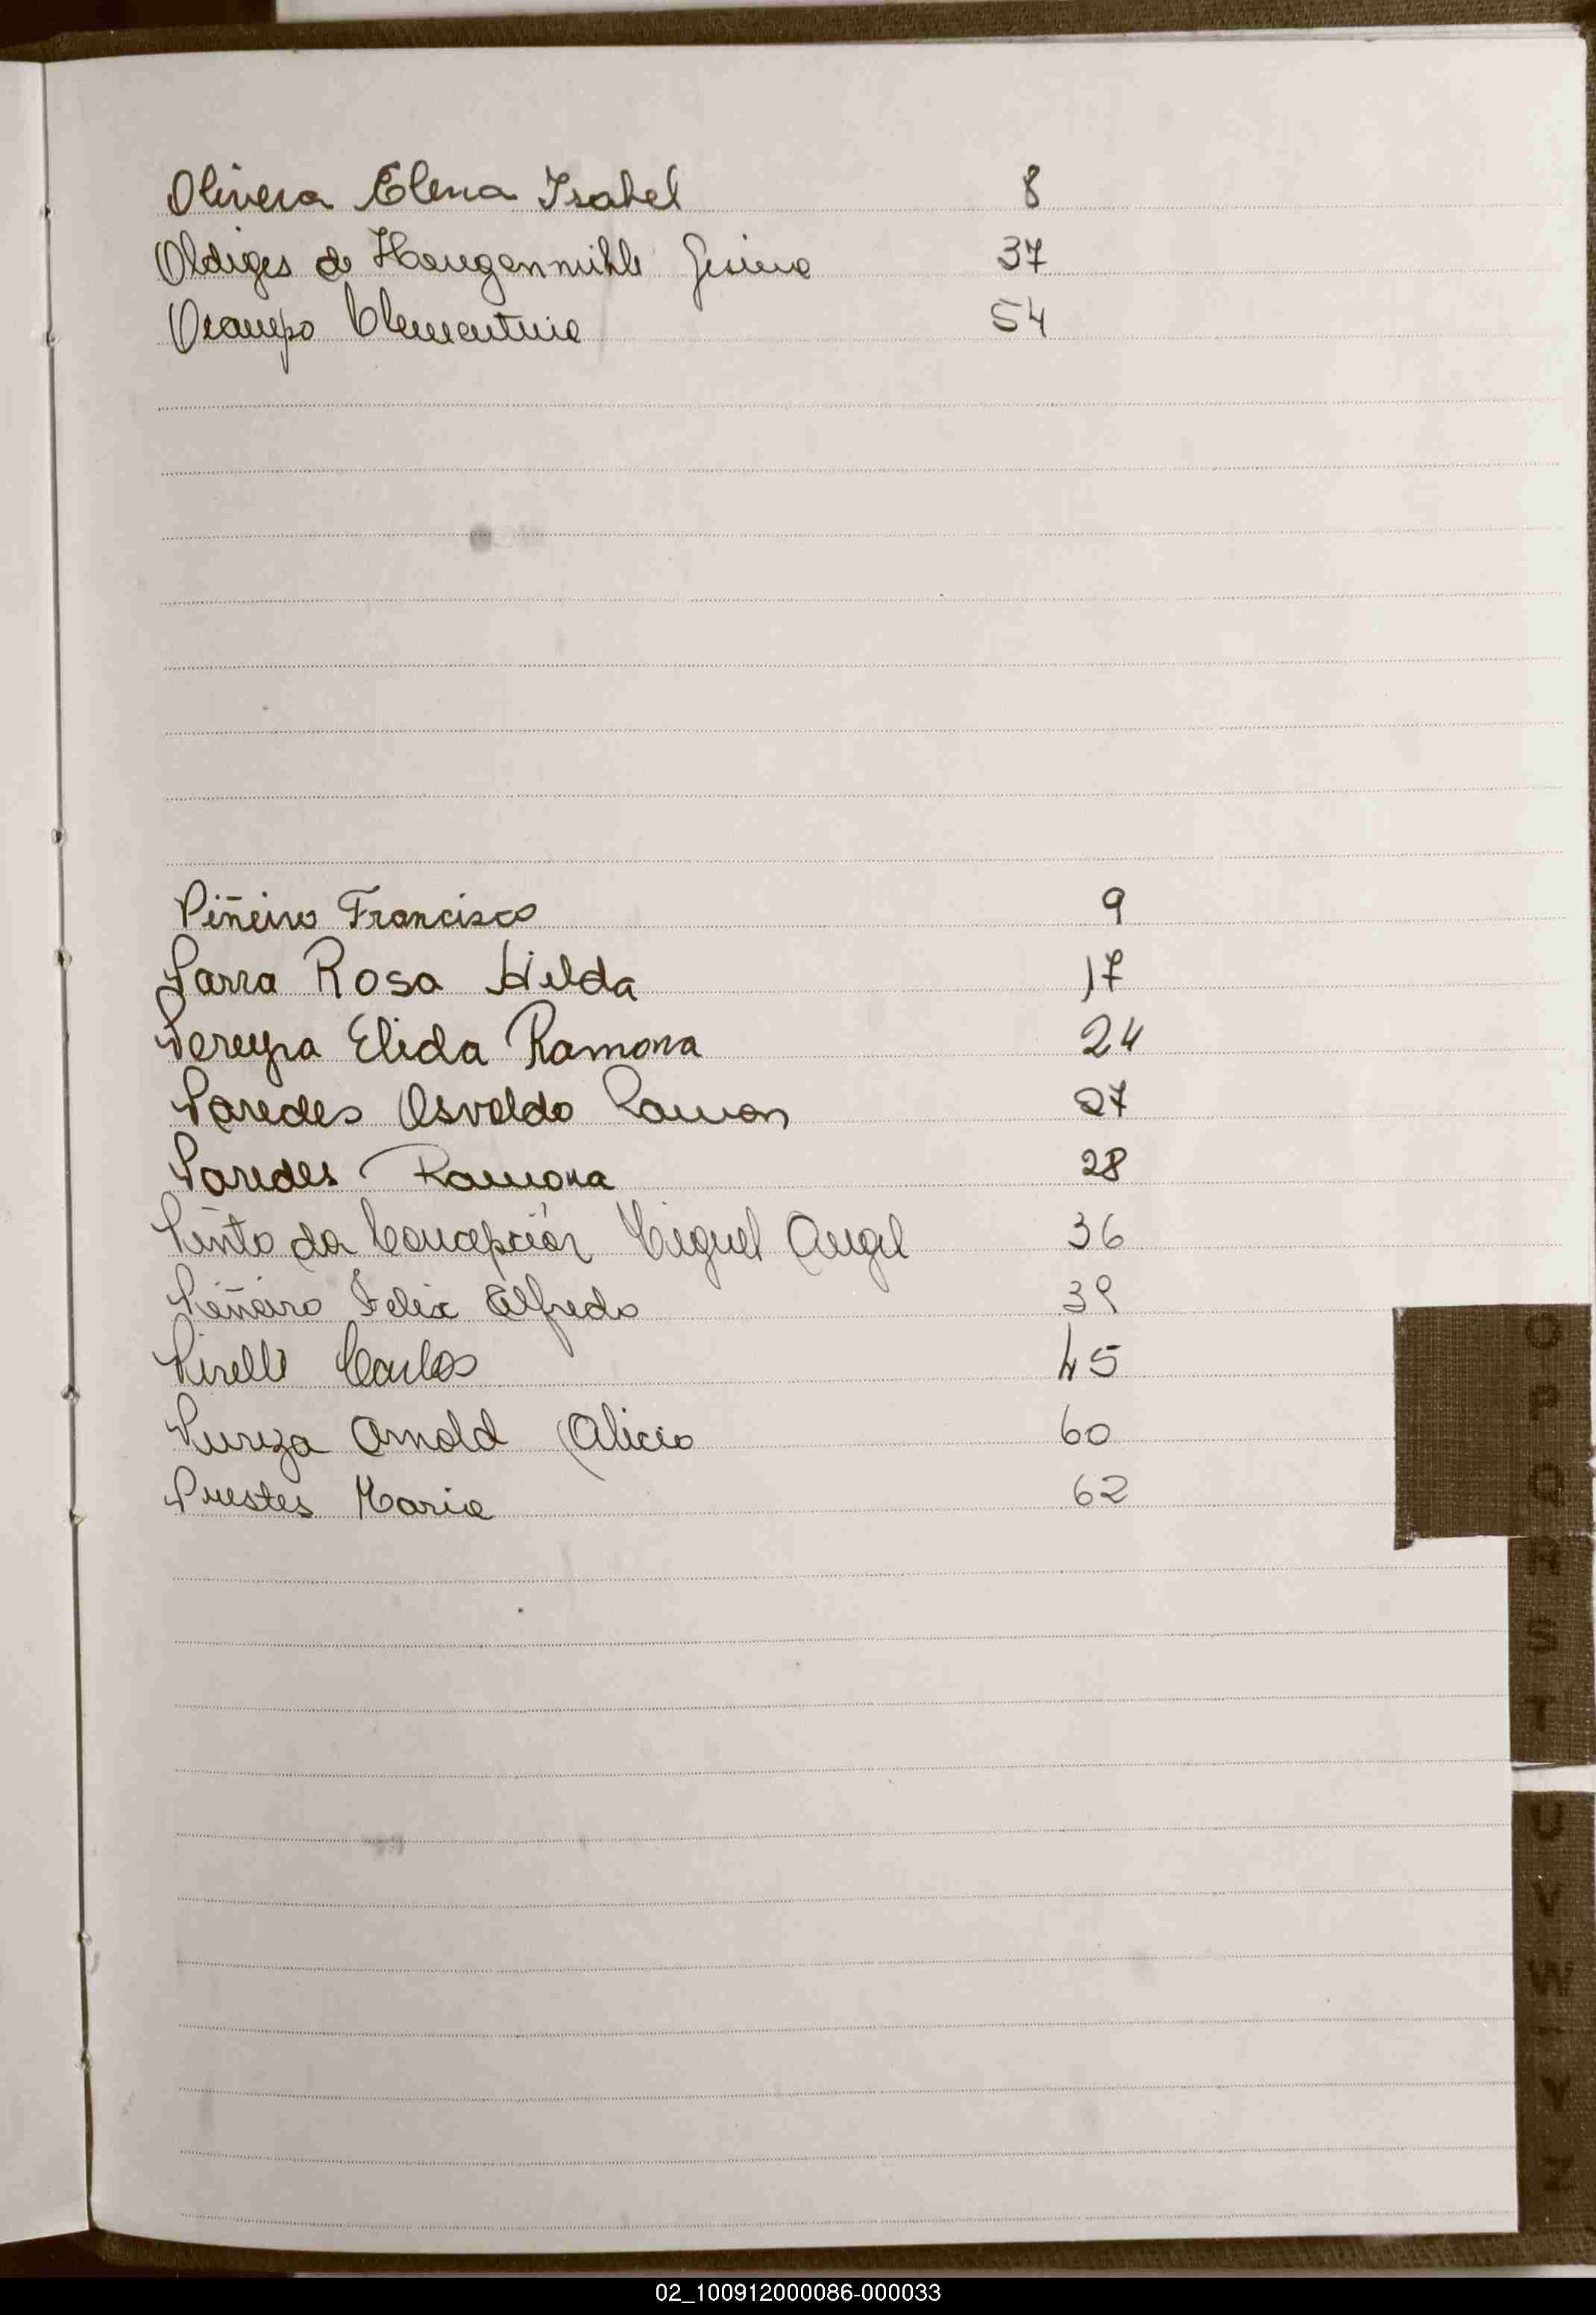 Olivera Elena Isabel 8
Oldiges de Haugenmihle Gesina 37
Ocampo Clementina 54
Piñeiro Francisco 9
Parra Rosa Hilda 17
Pereyra Elida Ramona 24
Paredes Osvaldo Ramon 27
Paredes Ramona 28
Pinto da Concepción Miguel Angel 36
Piñeiro Felix Alfredo 39
Pirelli Carlos 45
Pureza Arnold Alicia 60
Prestes Maria 62
O
P
Q
R
S
T
U
V
W
Y
Z
02_100912000086-000033